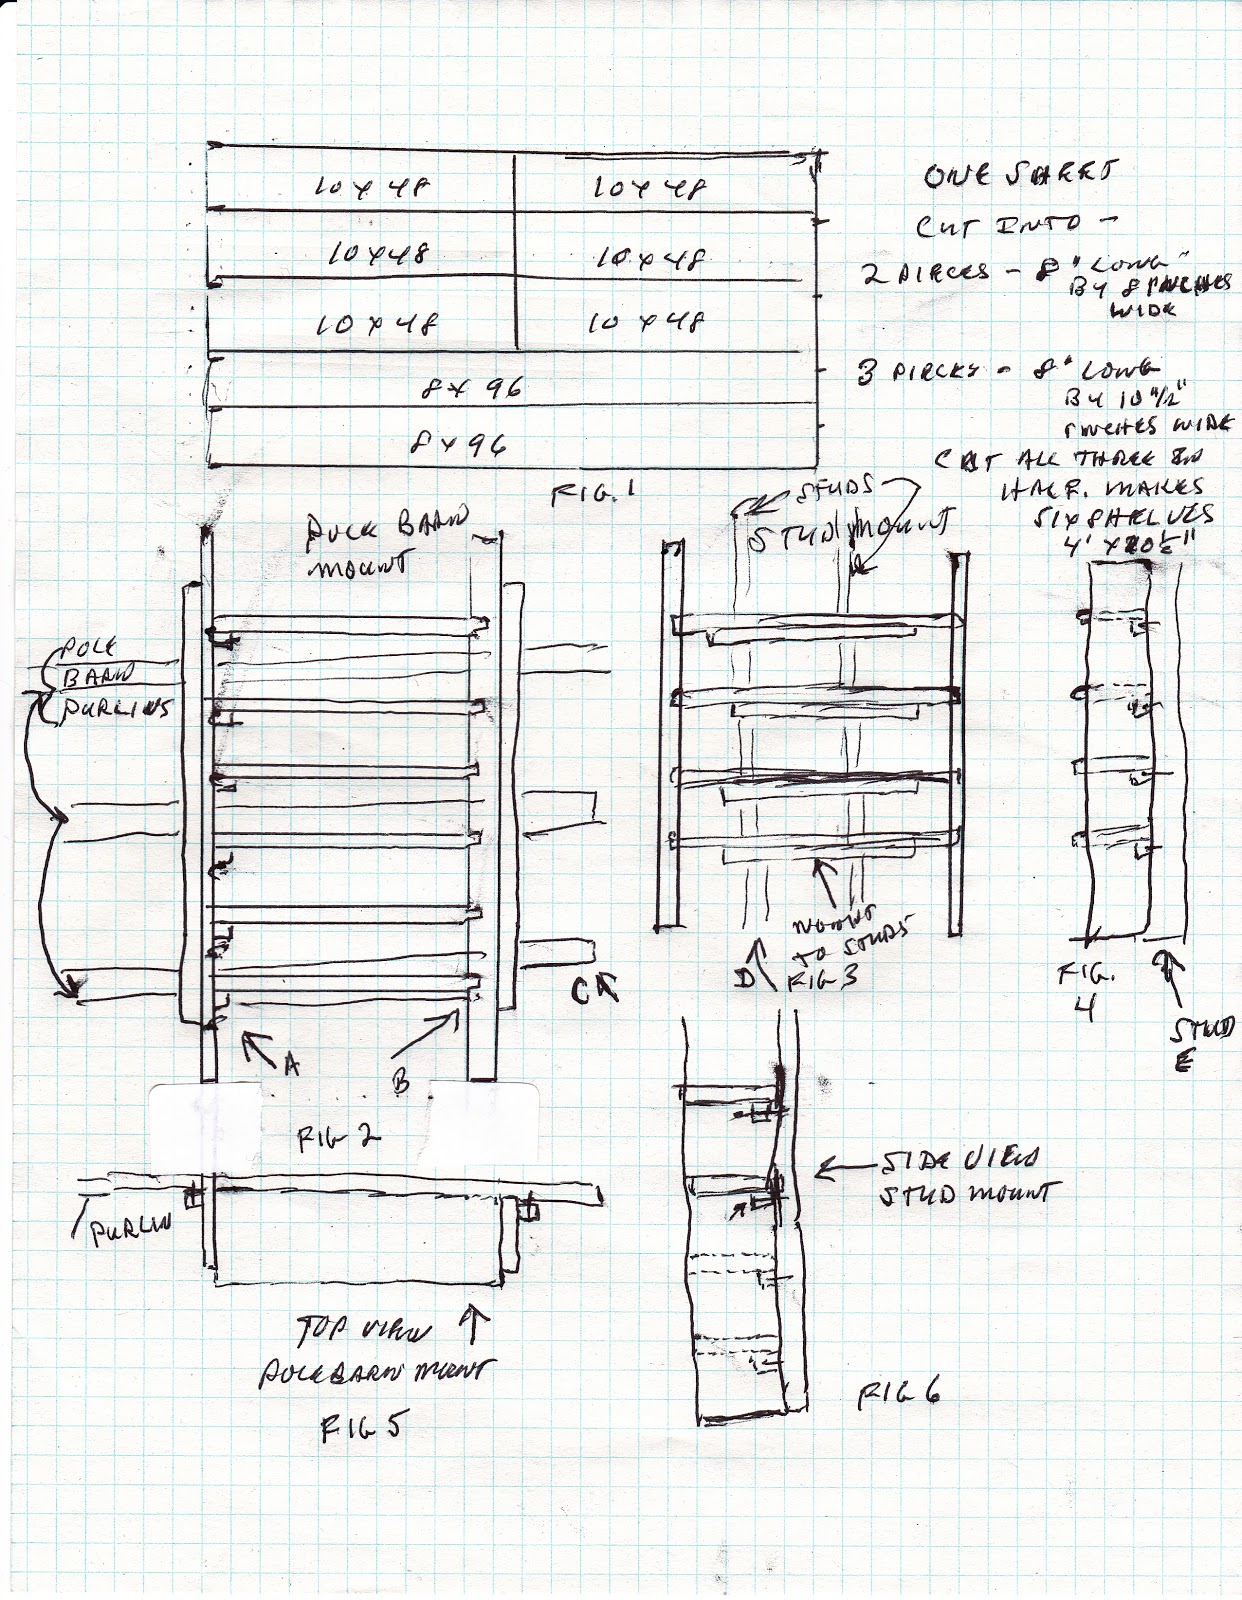 10 x 48 10 x 48
10 x 48 10 x 48
10 x 48 10 x 48
8 x 96
8 x 96
FIG. 1
ONE SHEET
CUT INTO -
2 PIECES - 8" LONG
BY 8 INCHES
WIDE
3 PIECES - 8" LONG
BY 10 1/2"
INCHES WIDE
CUT ALL THREE IN
HALF. MAKES
SIX SHELVES
4' x 10 1/2"
POLE BARN
MOUNT
STUDS
STUD MOUNT
POLE
BARN
PURLINS
A
B
C
FIG 2
MOUNT
TO STUDS
D
FIG 3
FIG.
4
STUD
E
PURLIN
TOP VIEW
POLE BARN MOUNT
FIG 5
SIDE VIEW
STUD MOUNT
FIG 6